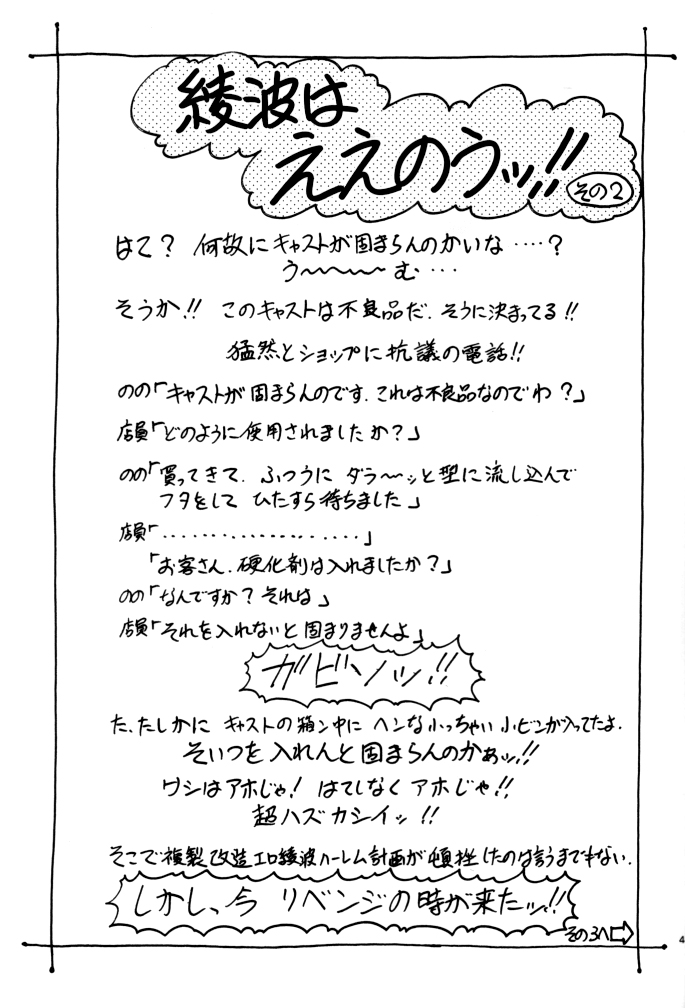 綾波は
ええのうッ!!
その2
はて? 何故にキャストが固まらんのかいな ‥‥?
う〜〜〜〜む ‥‥
そうか!! このキャストは不良品だ. そうに決まってる!!
猛然とショップに抗議の電話!!
のの「キャストが固まらんのです. これは不良品なのでわ?」
店員「どのように使用されましたか?」
のの「買ってきて. ふつうに ダラ〜〜ッと型に流し込んで
フタをして ひたすら待ちました」
店員「・・・・・・・・・・・・・・・・・・・」
「お客さん. 硬化剤は入れましたか?」
のの「なんですか? それは」
店員「それを入れないと固まりませんよ」
ガビソッ!!
た、たしかに キャストの箱ン中に ヘンな小っちゃい小ビンが入ってたよ.
そいつを入れんと固まらんのかぁッ!!
ワシはアホじゃ! はてしなくアホじゃ!!
超ハズカシイッ!!
そこで複製改造エロ綾波ハーレム計画が頓挫したのは言うまでもない.
しかしっ、今 リベンジの時が来たッ!!
その3へ
4